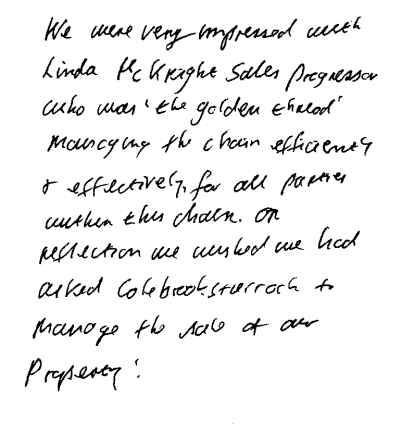 We were very impressed with
Linda McKnight Sales Progressor
who was 'the golden thread'
Managing the chain efficiently
& effectively, for all parties
within this chain. On
reflection we wished we had
asked Colebrook Sturrock to
manage the sale of our
Property!